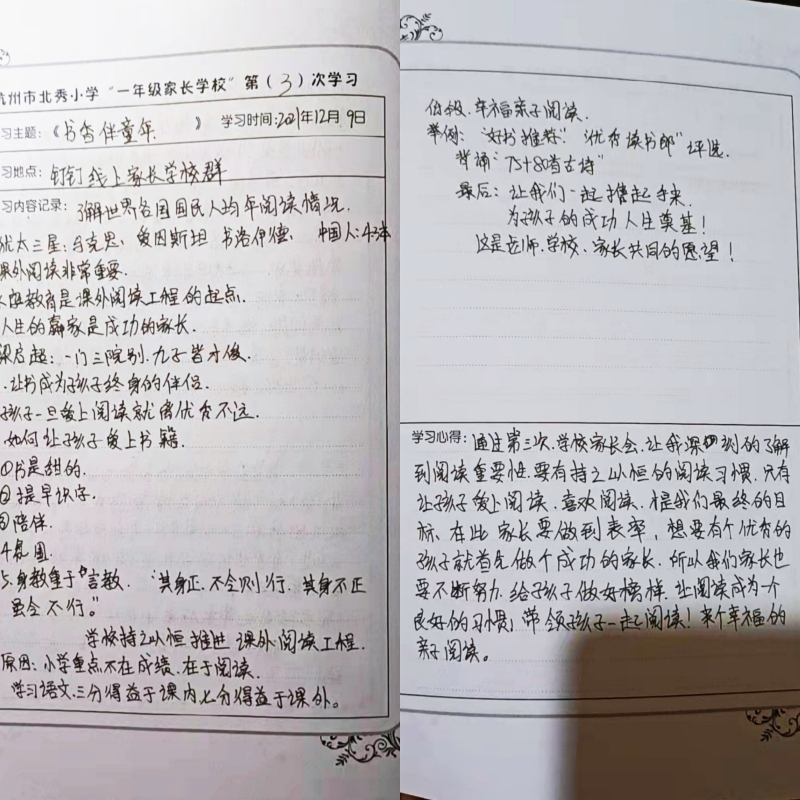 杭州市北秀小学“一年级家长学校”第（3）次学习
习主题：《书香伴童年》 学习时间：2021年12月9日
习地点：钉钉线上家长学校群
习内容记录：了解世界各国国民人均年阅读情况.
犹太三星：马克思、爱因斯坦 弗洛伊德. 中国人:4.3本
课外阅读非常重要.
家庭教育是课外阅读工程的起点.
人生的赢家是成功的家长.
梁启超：一门三院别.九子皆才俊.
.让书成为孩子终身的伴侣.
孩子一旦爱上阅读就离优秀不远.
.如何让孩子爱上书籍.
①书是甜的.
②提早识字.
③陪伴.
4.氛围
5.身教重于言教. “其身正.不令则行. 其身不正
虽令不行。”
学校持之以恒推进课外阅读工程.
原因：小学重点不在成绩.在于阅读.
学习语文.三分得益于课内七分得益于课外。
幸福亲子阅读.
举例：“好书推荐”.“优秀读书郎”评选.
背诵“75+80首古诗”
最后：让我们一起携起手来.
为孩子的成功人生奠基！
这是老师.学校、家长共同的愿望！
学习心得：通过第三次.学校家长会.让我深刻的了解
到阅读重要性.要有持之以恒的阅读习惯.只有
让孩子爱上阅读.喜欢阅读.是我们最终的目
标.在此家长要做到表率，想要有个优秀的
孩子就首先做个成功的家长.所以我们家长也
要不断努力.给孩子做好榜样.让阅读成为一个
良好的习惯；带领孩子一起阅读！来个幸福的
亲子阅读。